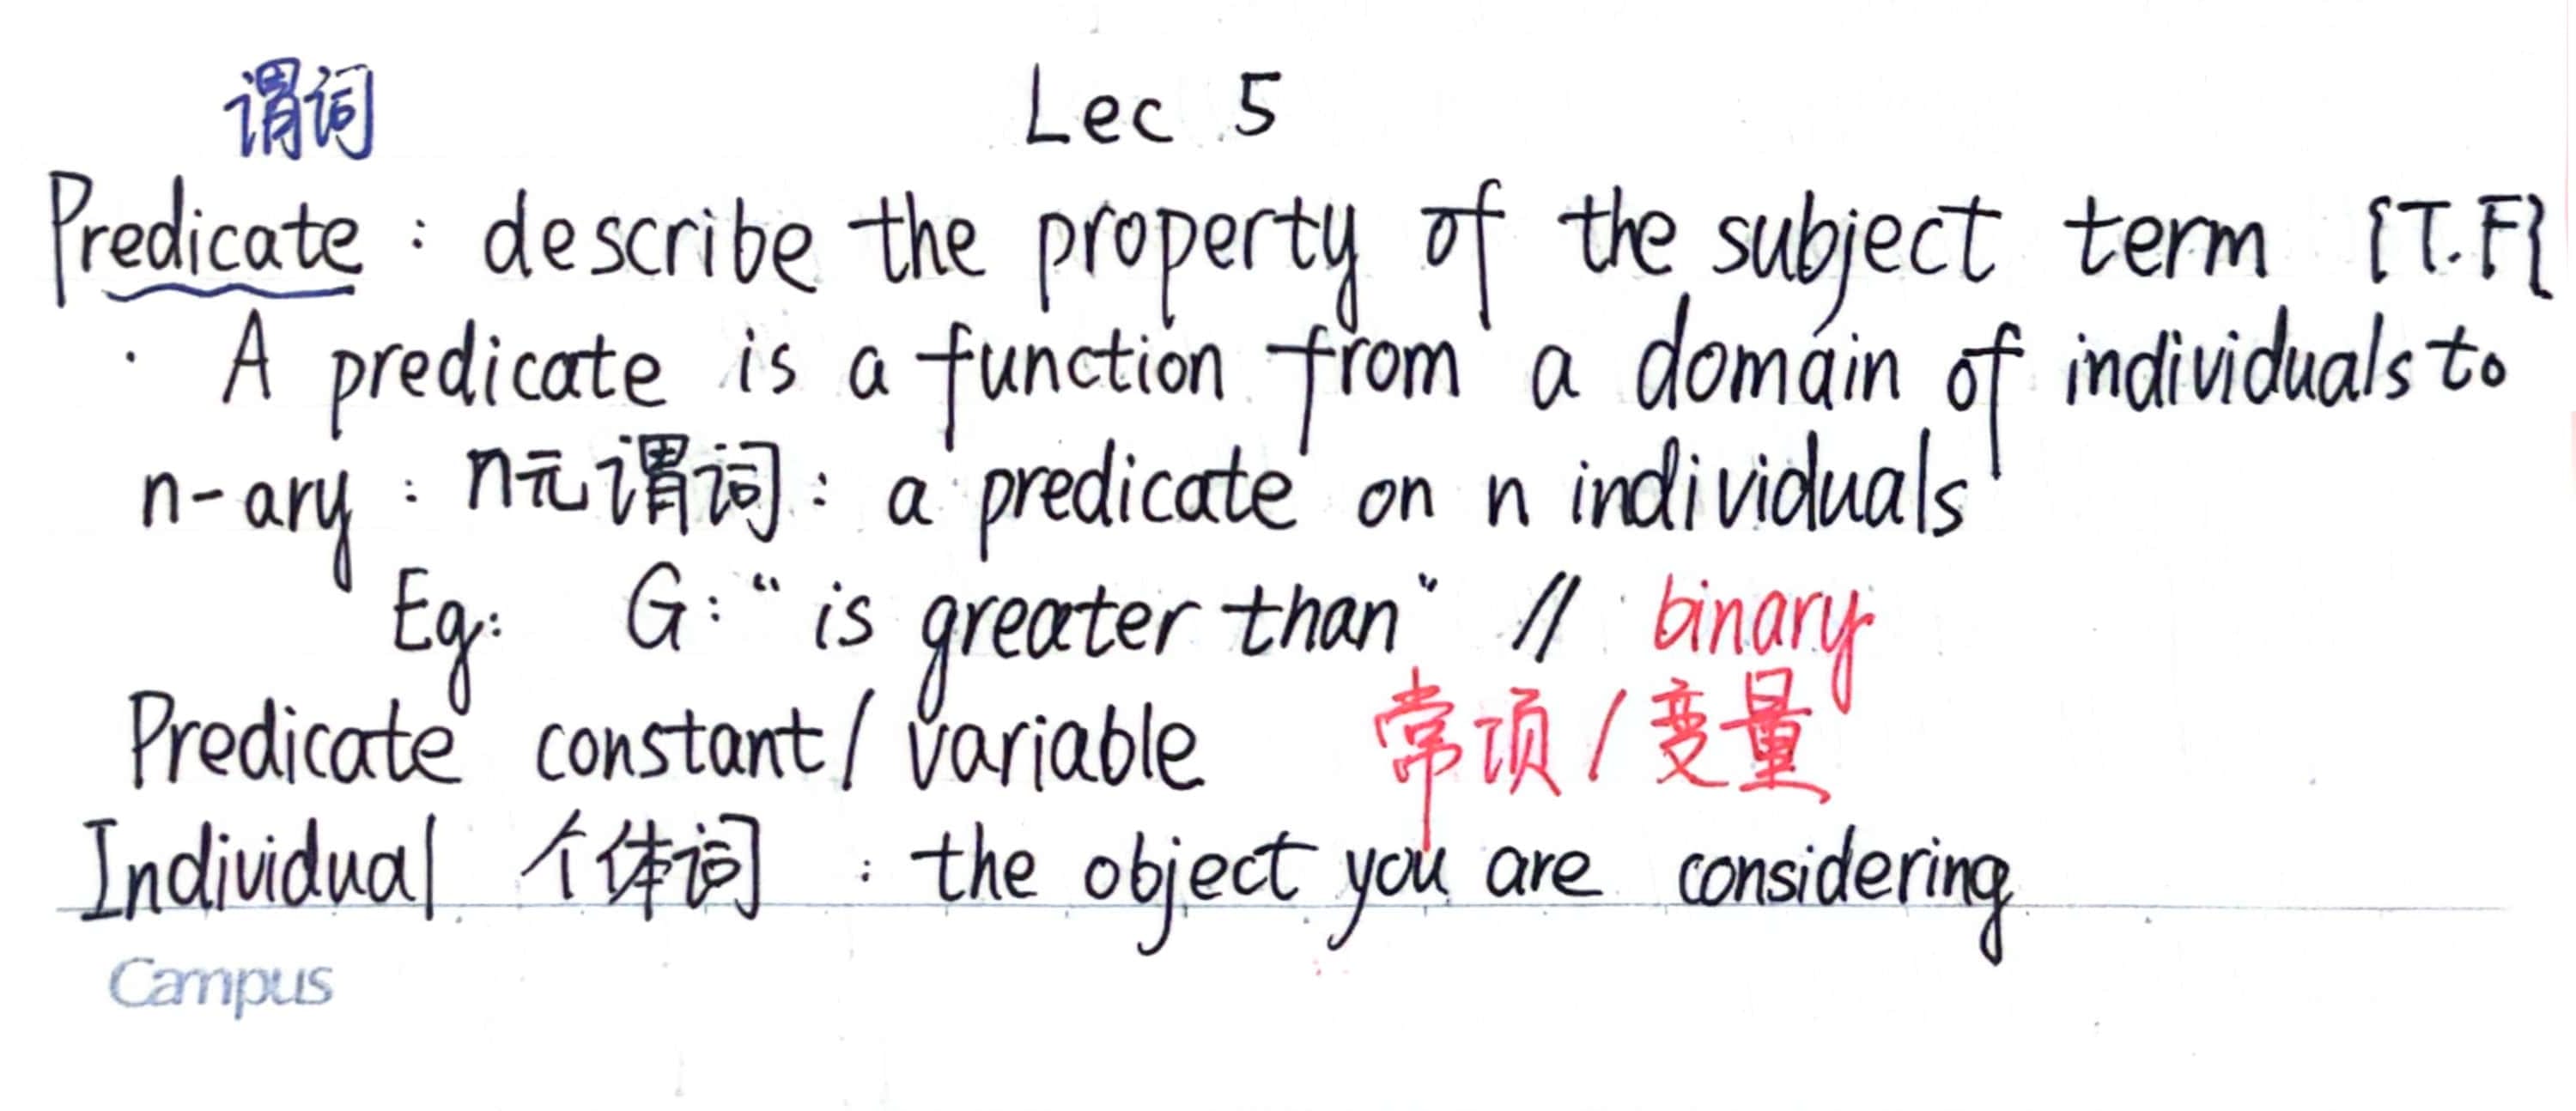 谓词 Lec 5
Predicate : describe the property of the subject term {T.F}
· A predicate is a function from a domain of individuals to
n-ary : n元谓词 : a predicate on n individuals
Eg: G: “ is greater than” // binary
Predicate constant / variable 常项 / 变量
Individual 个体词 : the object you are considering
Campus